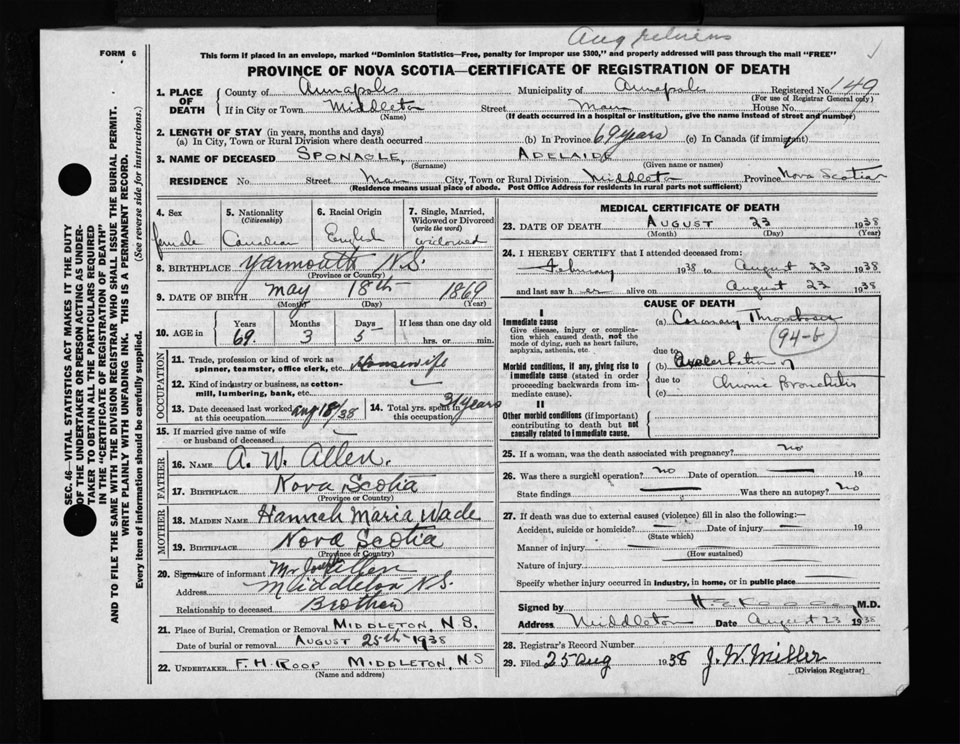 Aug returns
FORM 6
This form if placed in an envelope, marked "Dominion Statistics—Free, penalty for improper use $300," and properly addressed will pass through the mail "FREE"
PROVINCE OF NOVA SCOTIA—CERTIFICATE OF REGISTRATION OF DEATH
SEC. 46—VITAL STATISTICS ACT MAKES IT THE DUTY
OF THE UNDERTAKER OR PERSON ACTING AS UNDER-
TAKER TO OBTAIN ALL THE PARTICULARS REQUIRED
IN THE "CERTIFICATE OF REGISTRATION OF DEATH"
AND TO FILE THE SAME WITH THE DIVISION REGISTRAR WHO SHALL ISSUE THE BURIAL PERMIT.
WRITE PLAINLY WITH UNFADING INK. THIS IS A PERMANENT RECORD.
Every item of information should be carefully supplied. (See reverse side for instructions.)
1. PLACE OF DEATH County of Annapolis Municipality of Annapolis Registered No. 149
(For use of Registrar General only)
If in City or Town Middleton Street Main House No.
(Name) (If death occurred in a hospital or institution, give the name instead of street and number)
2. LENGTH OF STAY (in years, months and days)
(a) In City, Town or Rural Division where death occurred (b) In Province 69 years (c) In Canada (if immigrant)
3. NAME OF DECEASED SPONAGLE, ADELAIDE
(Surname) (Given name or names)
RESIDENCE No. Street Main City, Town or Rural Division Middleton Province Nova Scotia
(Residence means usual place of abode. Post Office Address for residents in rural parts not sufficient)
4. Sex 5. Nationality (Citizenship) 6. Racial Origin 7. Single, Married, Widowed or Divorced (write the word)
female Canadian English widowed
8. BIRTHPLACE Yarmouth N.S.
(Province or Country)
9. DATE OF BIRTH May 18th 1869
(Month) (Day) (Year)
10. AGE in Years Months Days If less than one day old
69. 3 5 hrs. or min.
OCCUPATION
11. Trade, profession or kind of work as
spinner, teamster, office clerk, etc. Housewife
12. Kind of industry or business, as cotton-
mill, lumbering, bank, etc. —
13. Date deceased last worked at this occupation Aug 18/38 14. Total yrs. spent in this occupation 31 years
15. If married give name of wife
or husband of deceased —
FATHER
16. NAME A. W. Allen.
17. BIRTHPLACE Nova Scotia
(Province or Country)
MOTHER
18. MAIDEN NAME Hannah Maria Wade
19. BIRTHPLACE Nova Scotia
(Province or Country)
20. Signature of informant Mr Joseph Allen
Address Middleton N.S.
Relationship to deceased Brother
21. Place of Burial, Cremation or Removal MIDDLETON, N S.
Date of burial or removal AUGUST 25th 1938
22. UNDERTAKER F. H. ROOP MIDDLETON, N S
(Name and address)
MEDICAL CERTIFICATE OF DEATH
23. DATE OF DEATH AUGUST 23 1938
(Month) (Day) (Year)
24. I HEREBY CERTIFY that I attended deceased from:
February 1938 to August 23 1938
and last saw h er alive on August 23 1938
CAUSE OF DEATH
I
Immediate cause (a) Coronary Thrombosis
Give disease, injury or complica-
tion which caused death, not the
mode of dying, such as heart failure,
asphyxia, asthenia, etc.
94-b
due to
Morbid conditions, if any, giving rise (b) Exacerbation of
to immediate cause (stated in order due to Chronic Bronchitis
proceeding backwards from im- (c)
mediate cause).
II
Other morbid conditions (if important)
contributing to death but not
causally related to immediate cause.
25. If a woman, was the death associated with pregnancy? no
26. Was there a surgical operation? no Date of operation — 19
State findings — Was there an autopsy? no
27. If death was due to external causes (violence) fill in also the following:—
Accident, suicide or homicide? — Date of injury — 19
(State which)
Manner of injury
(How sustained)
Nature of injury
Specify whether injury occurred in industry, in home, or in public place
Signed by M.D.
Address Middleton Date August 23 1938
28. Registrar's Record Number
29. Filed 25 Aug 1938 J. W. Miller
(Division Registrar)